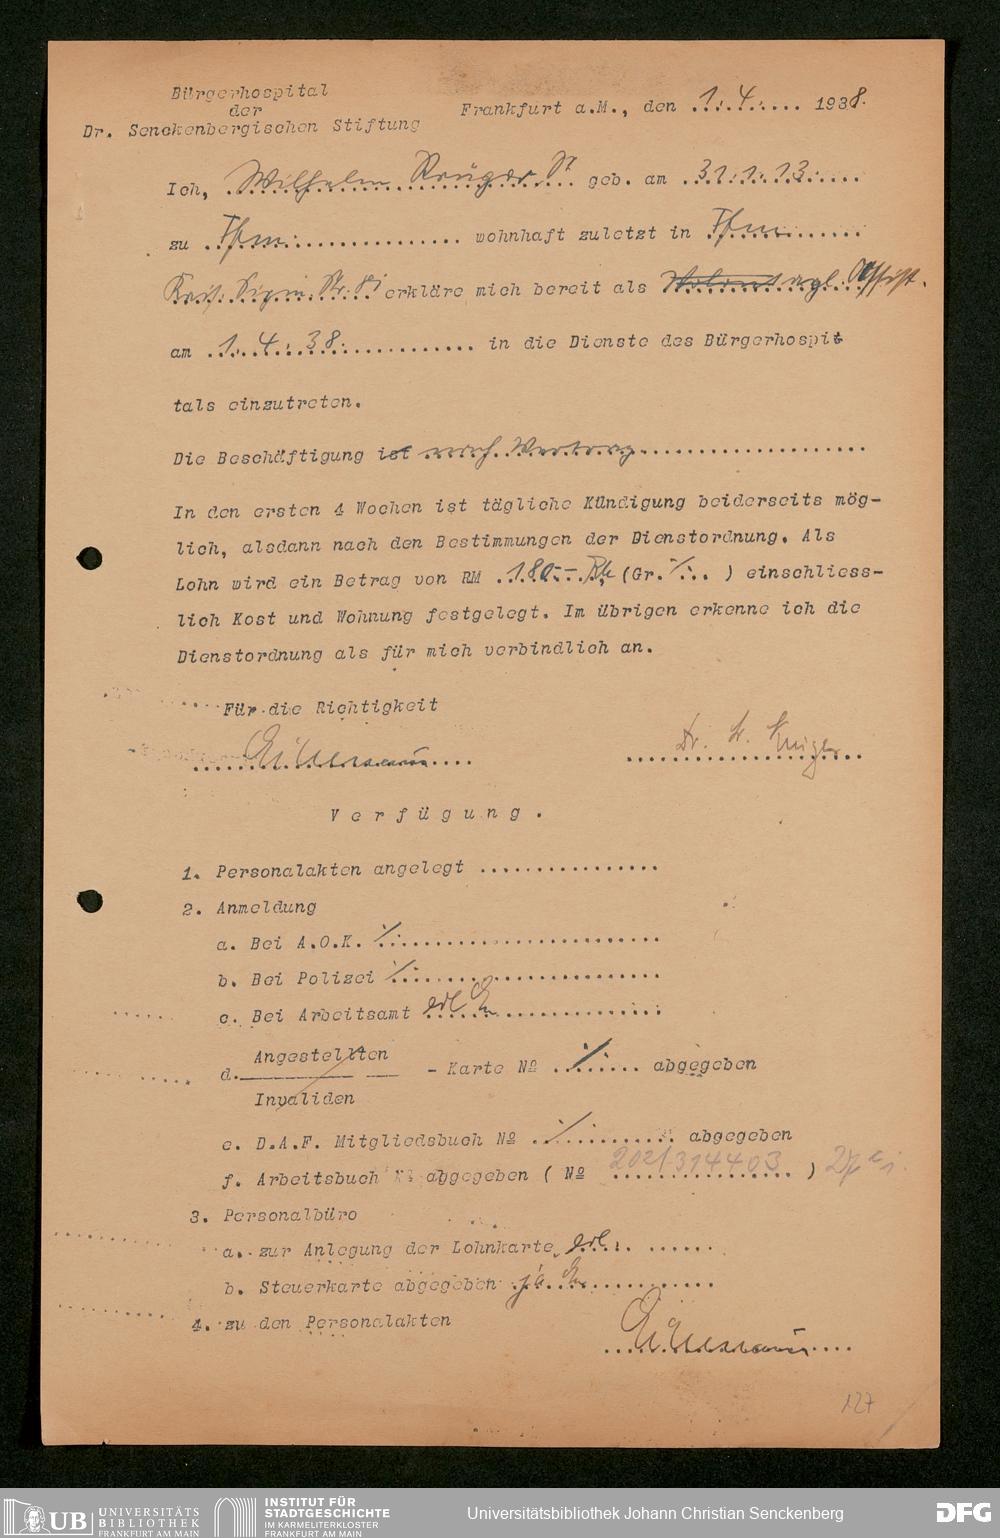 Bürgerhospital
der
Dr. Senckenbergischen Stiftung
Frankfurt a.M., den 1. 4. 1938.
Ich, Wilhelm Krüger Dr geb. am 31. 1. 13.
zu Ffm. wohnhaft zuletzt in Ffm.
Str. 81 erkläre mich bereit als apl. Assist.
am 1. 4. 38. in die Dienste des Bürgerhospit
tals einzutreten.
Die Beschäftigung ist nach Vertrag
In den ersten 4 Wochen ist tägliche Kündigung beiderseits mög-
lich, alsdann nach den Bestimmungen der Dienstordnung. Als
Lohn wird ein Betrag von RM 180.-- (Gr. ./. ) einschliess-
lich Kost und Wohnung festgelegt. Im übrigen erkenne ich die
Dienstordnung als für mich verbindlich an.
Für die Richtigkeit
Dr. W. Krüger
Verfügung.
1. Personalakten angelegt
2. Anmeldung
a. Bei A.O.K. ./.
b. Bei Polizei ./.
c. Bei Arbeitsamt erl.
Angestellten
d. - Karte № ./. abgegeben
Invaliden
e. D.A.F. Mitgliedsbuch № ./. abgegeben
f. Arbeitsbuch abgegeben ( № 202/314403 )
3. Personalbüro
a. zur Anlegung der Lohnkarte erl.
b. Steuerkarte abgegeben ja
4. zu den Personalakten
127
UB UNIVERSITÄTS
BIBLIOTHEK
FRANKFURT AM MAIN
INSTITUT FÜR
STADTGESCHICHTE
IM KARMELITERKLOSTER
FRANKFURT AM MAIN
Universitätsbibliothek Johann Christian Senckenberg
DFG